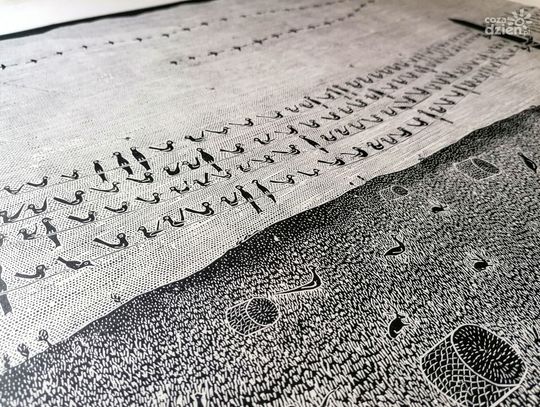 coza
dzień